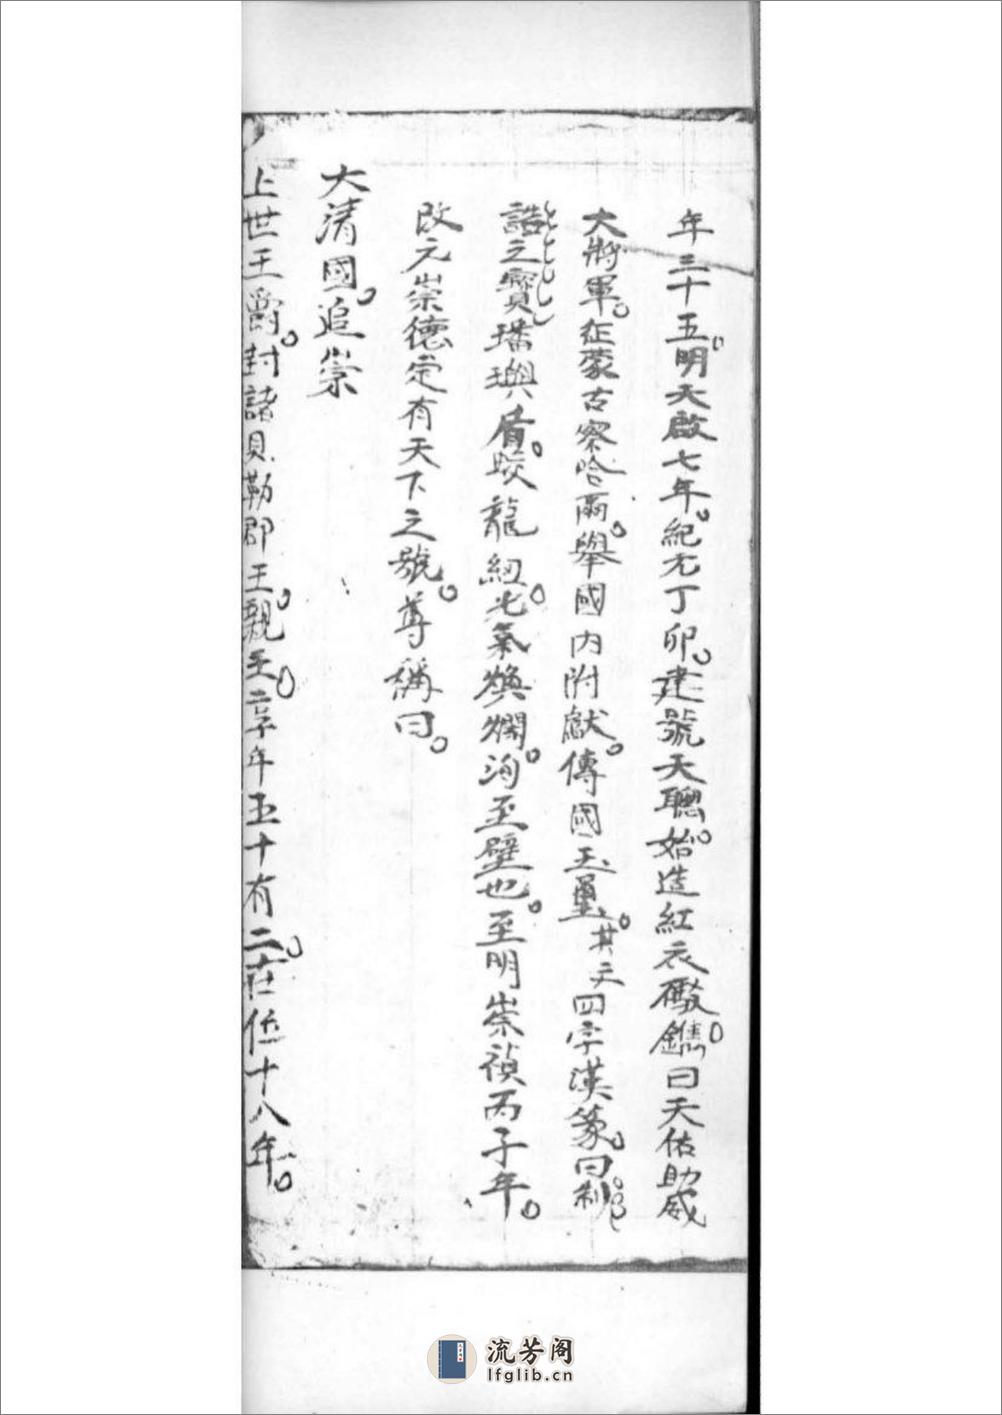 年三十五明天啟七年紀元丁卯建號天聰始造紅衣礮鐫曰天佑助威
大將軍征蒙古察哈爾舉國內附獻傳國玉璽其文四字漢篆曰制
誥之寶璠璵盾蛟龍紐光氣煥爛洵至壁也至明崇禎丙子年
改元崇德定有天下之號尊稱曰
大清國追崇
上世王爵封諸貝勒郡王親王享年五十有二在位十八年
流芳阁
lfglib.cn